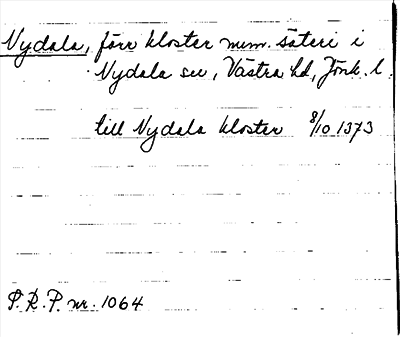 Nydala, förr kloster num. säteri i
Nydala sn, Västra hd, Jönk. l.
till Nydala kloster 8/10 1373
P.R.P. nr. 1064